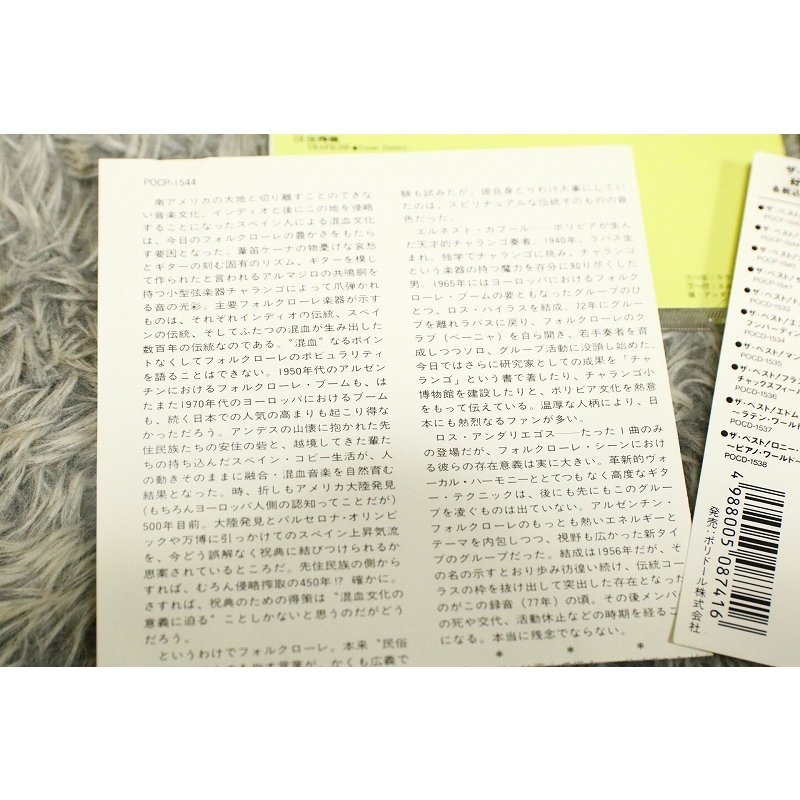 POCP-1544
南アメリカの大地と切り離すことのできな
い音楽文化。インディオと後にこの地を侵略
することになったスペイン人による混血文化
は、今日のフォルクローレの豊かさをもたら
す要因となった。葦笛ケーナの物憂げな哀愁
とギターの刻む固有のリズム、ギターを模し
て作られたと言われるアルマジロの共鳴胴を
持つ小型弦楽器チャランゴによって爪弾かれ
る音の光彩。主要フォルクローレ楽器が示す
ものは、それぞれインディオの伝統、スペイ
ンの伝統、そしてふたつの混血が生み出した
数百年の伝統なのである。“混血”なるポイン
トなくしてフォルクローレのポピュラリティ
を語ることはできない。1950年代のアルゼン
チンにおけるフォルクローレ・ブームも、は
たまた1970年代のヨーロッパにおけるブーム
も、続く日本での人気の高まりも起こり得な
かっただろう。アンデスの山懐に抱かれた先
住民族たちの安住の砦と、越境してきた輩た
ちの持ち込んだスペイン・コピー生活が、人
の動きそのままに融合・混血音楽を自然育む
結果となった。時、折しもアメリカ大陸発見
(もちろんヨーロッパ人側の認知ってことだが)
500年目前。大陸発見とバルセロナ・オリンピ
ックや万博に引っかけてのスペイン上昇気流
を、今どう誤解なく祝典に結びつけられるか
思案されているところだ。先住民族の側から
すれば、むろん侵略搾取の450年!? 確かに。
さすれば、祝典のための得策は“混血文化の
意義に迫る”ことしかないと思うのだがどう
だろう。
というわけでフォルクローレ。本来“民俗
を指す言葉が、かくも広義で
験も試みたが、彼自身とりわけ大事にしてい
たのは、スピリチュアルな伝統そのものの音
色だった。
エルネスト・カブール──ボリビアが生ん
だ天才的チャランゴ奏者。1940年、ラパス生
まれ、独学でチャランゴに挑み、チャランゴ
という楽器の持つ魔力を存分に知り尽くした
男。1965年にはヨーロッパにおけるフォルク
ローレ・ブームの要ともなったグループのひ
とつ、ロス・ハイラスを結成。72年にグルー
プを離れラパスに戻り、フォルクローレのク
ラブ(ペーニャ)を自ら開き、若手奏者を育
成しつつソロ、グループ活動に没頭し始めた。
今日ではさらに研究家としての成果を「チャ
ランゴ」という書で著したり、チャランゴ小
博物館を建設したりと、ボリビア文化を熱意
をもって伝えている。温厚な人柄により、日
本にも熱烈なるファンが多い。
ロス・アンダリエゴス──たった1曲のみ
の登場だが、フォルクローレ・シーンにおけ
る彼らの存在意義は実に大きい。革新的ヴォ
ーカル・ハーモニーととてつもなく高度なギタ
ー・テクニックは、後にも先にもこのグルー
プを凌ぐものは出ていない。アルゼンチン・
フォルクローレのもっとも熱いエネルギーと
テーマを内包しつつ、視野も広かった新タイ
プのグループだった。結成は1956年だが、そ
の名の示すとおり歩み彷徨い続け、伝統コー
ラスの枠を抜け出して突出した存在となった
のがこの録音(77年)の頃。その後メンバー
の死や交代、活動休止などの時期を経るこ
になる。本当に残念でならない。
* * *
POCD-1533
POCD-1534
●ザ・ベスト/マン
POCD-1535
●ザ・ベスト/フラン
チャックスフィール
POCD-1536
●ザ・ベスト/エトム
〜ラテン・ワールド
POCD-1537
●ザ・ベスト/ロニー・
〜ピアノ・ワールド・
POCD-1538
4 988005 087416
発売:ポリドール株式会社